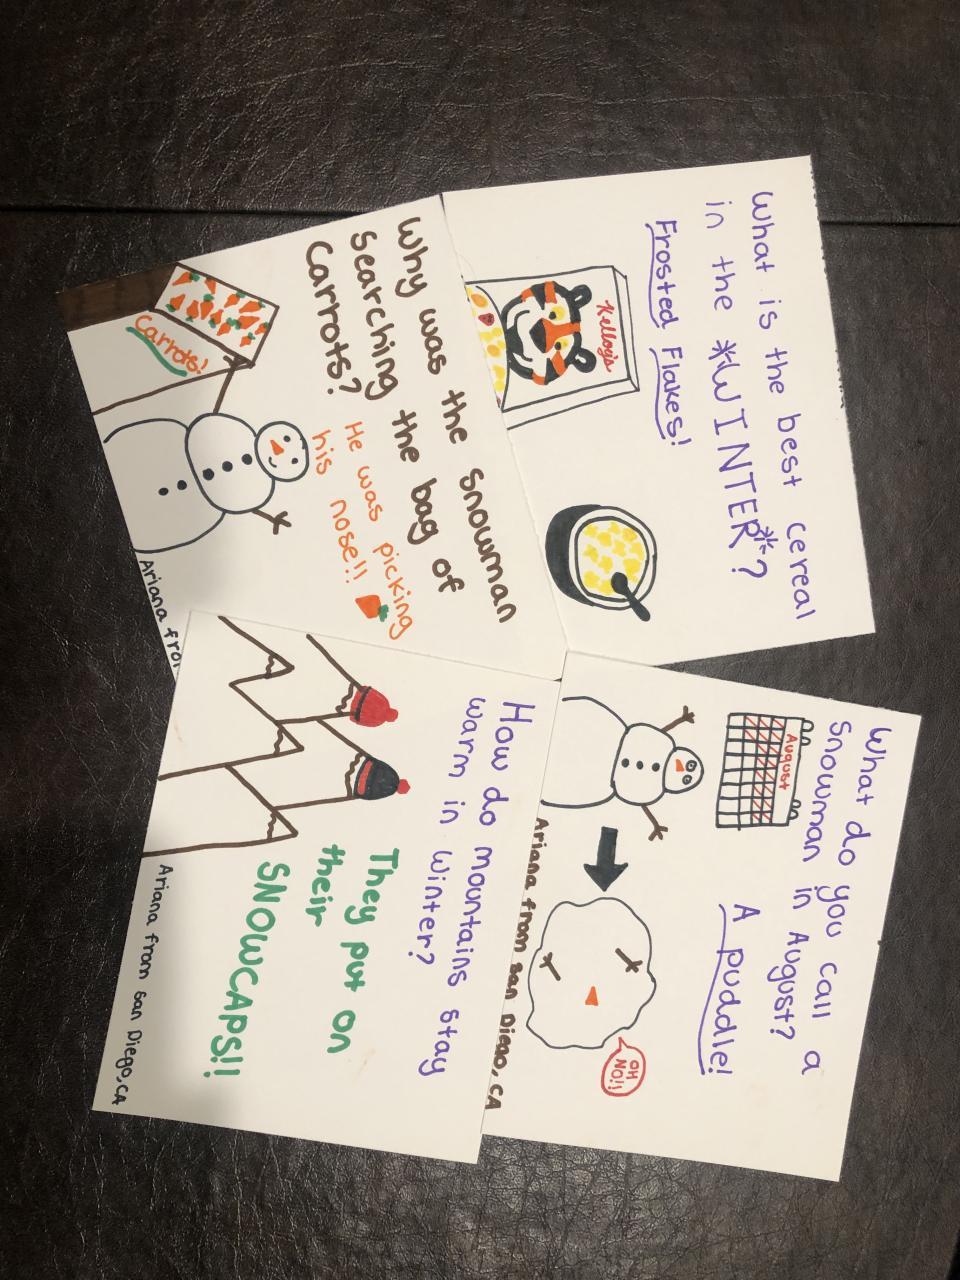 What is the best cereal
in the *WINTER*?
Frosted Flakes!
Kellogg's
Why was the snowman
Searching the bag of
Carrots?
He was picking
his nose!!
Carrots!
Ariana from
What do you call a
snowman in August?
A puddle!
August
OH
NO!!
Ariana from San Diego, CA
How do mountains stay
warm in Winter?
They put on
their
SNOWCAPS!!
Ariana from San Diego, CA